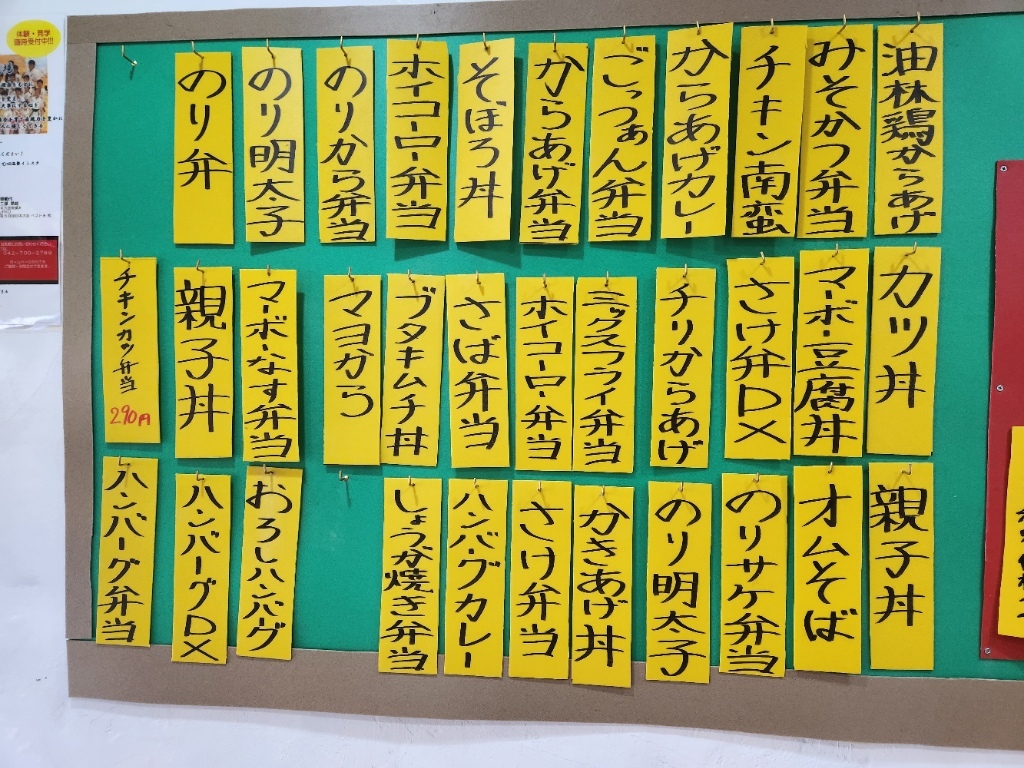 油林鶏からあげ
みそかつ弁当
チキン南蛮
からあげカレー
ごっつぁん弁当
からあげ弁当
そぼろ丼
ホイコーロー弁当
のりから弁当
のり明太子
のり弁
カツ丼
マーボー豆腐丼
さけ弁DX
チリからあげ
ミックスフライ弁当
ホイコーロー弁当
さば弁当
ブタキムチ丼
マヨから
マーボーなす弁当
親子丼
チキンカツ弁当
290円
親子丼
オムそば
のりサケ弁当
のり明太子
かきあげ丼
さけ弁当
ハンバーグカレー
しょうが焼き弁当
おろしハンバーグ
ハンバーグDX
ハンバーグ弁当
体験・見学
随時受付中!!